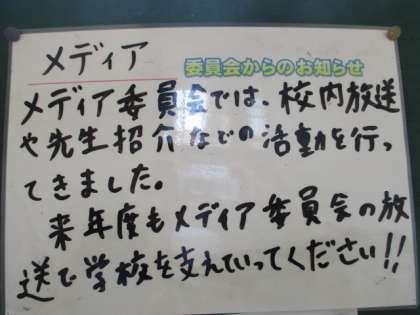 メディア 委員会からのお知らせ
メディア委員会では、校内放送
や先生紹介などの活動を行っ
てきました。
来年度もメディア委員会の放
送で学校を支えていってください!!